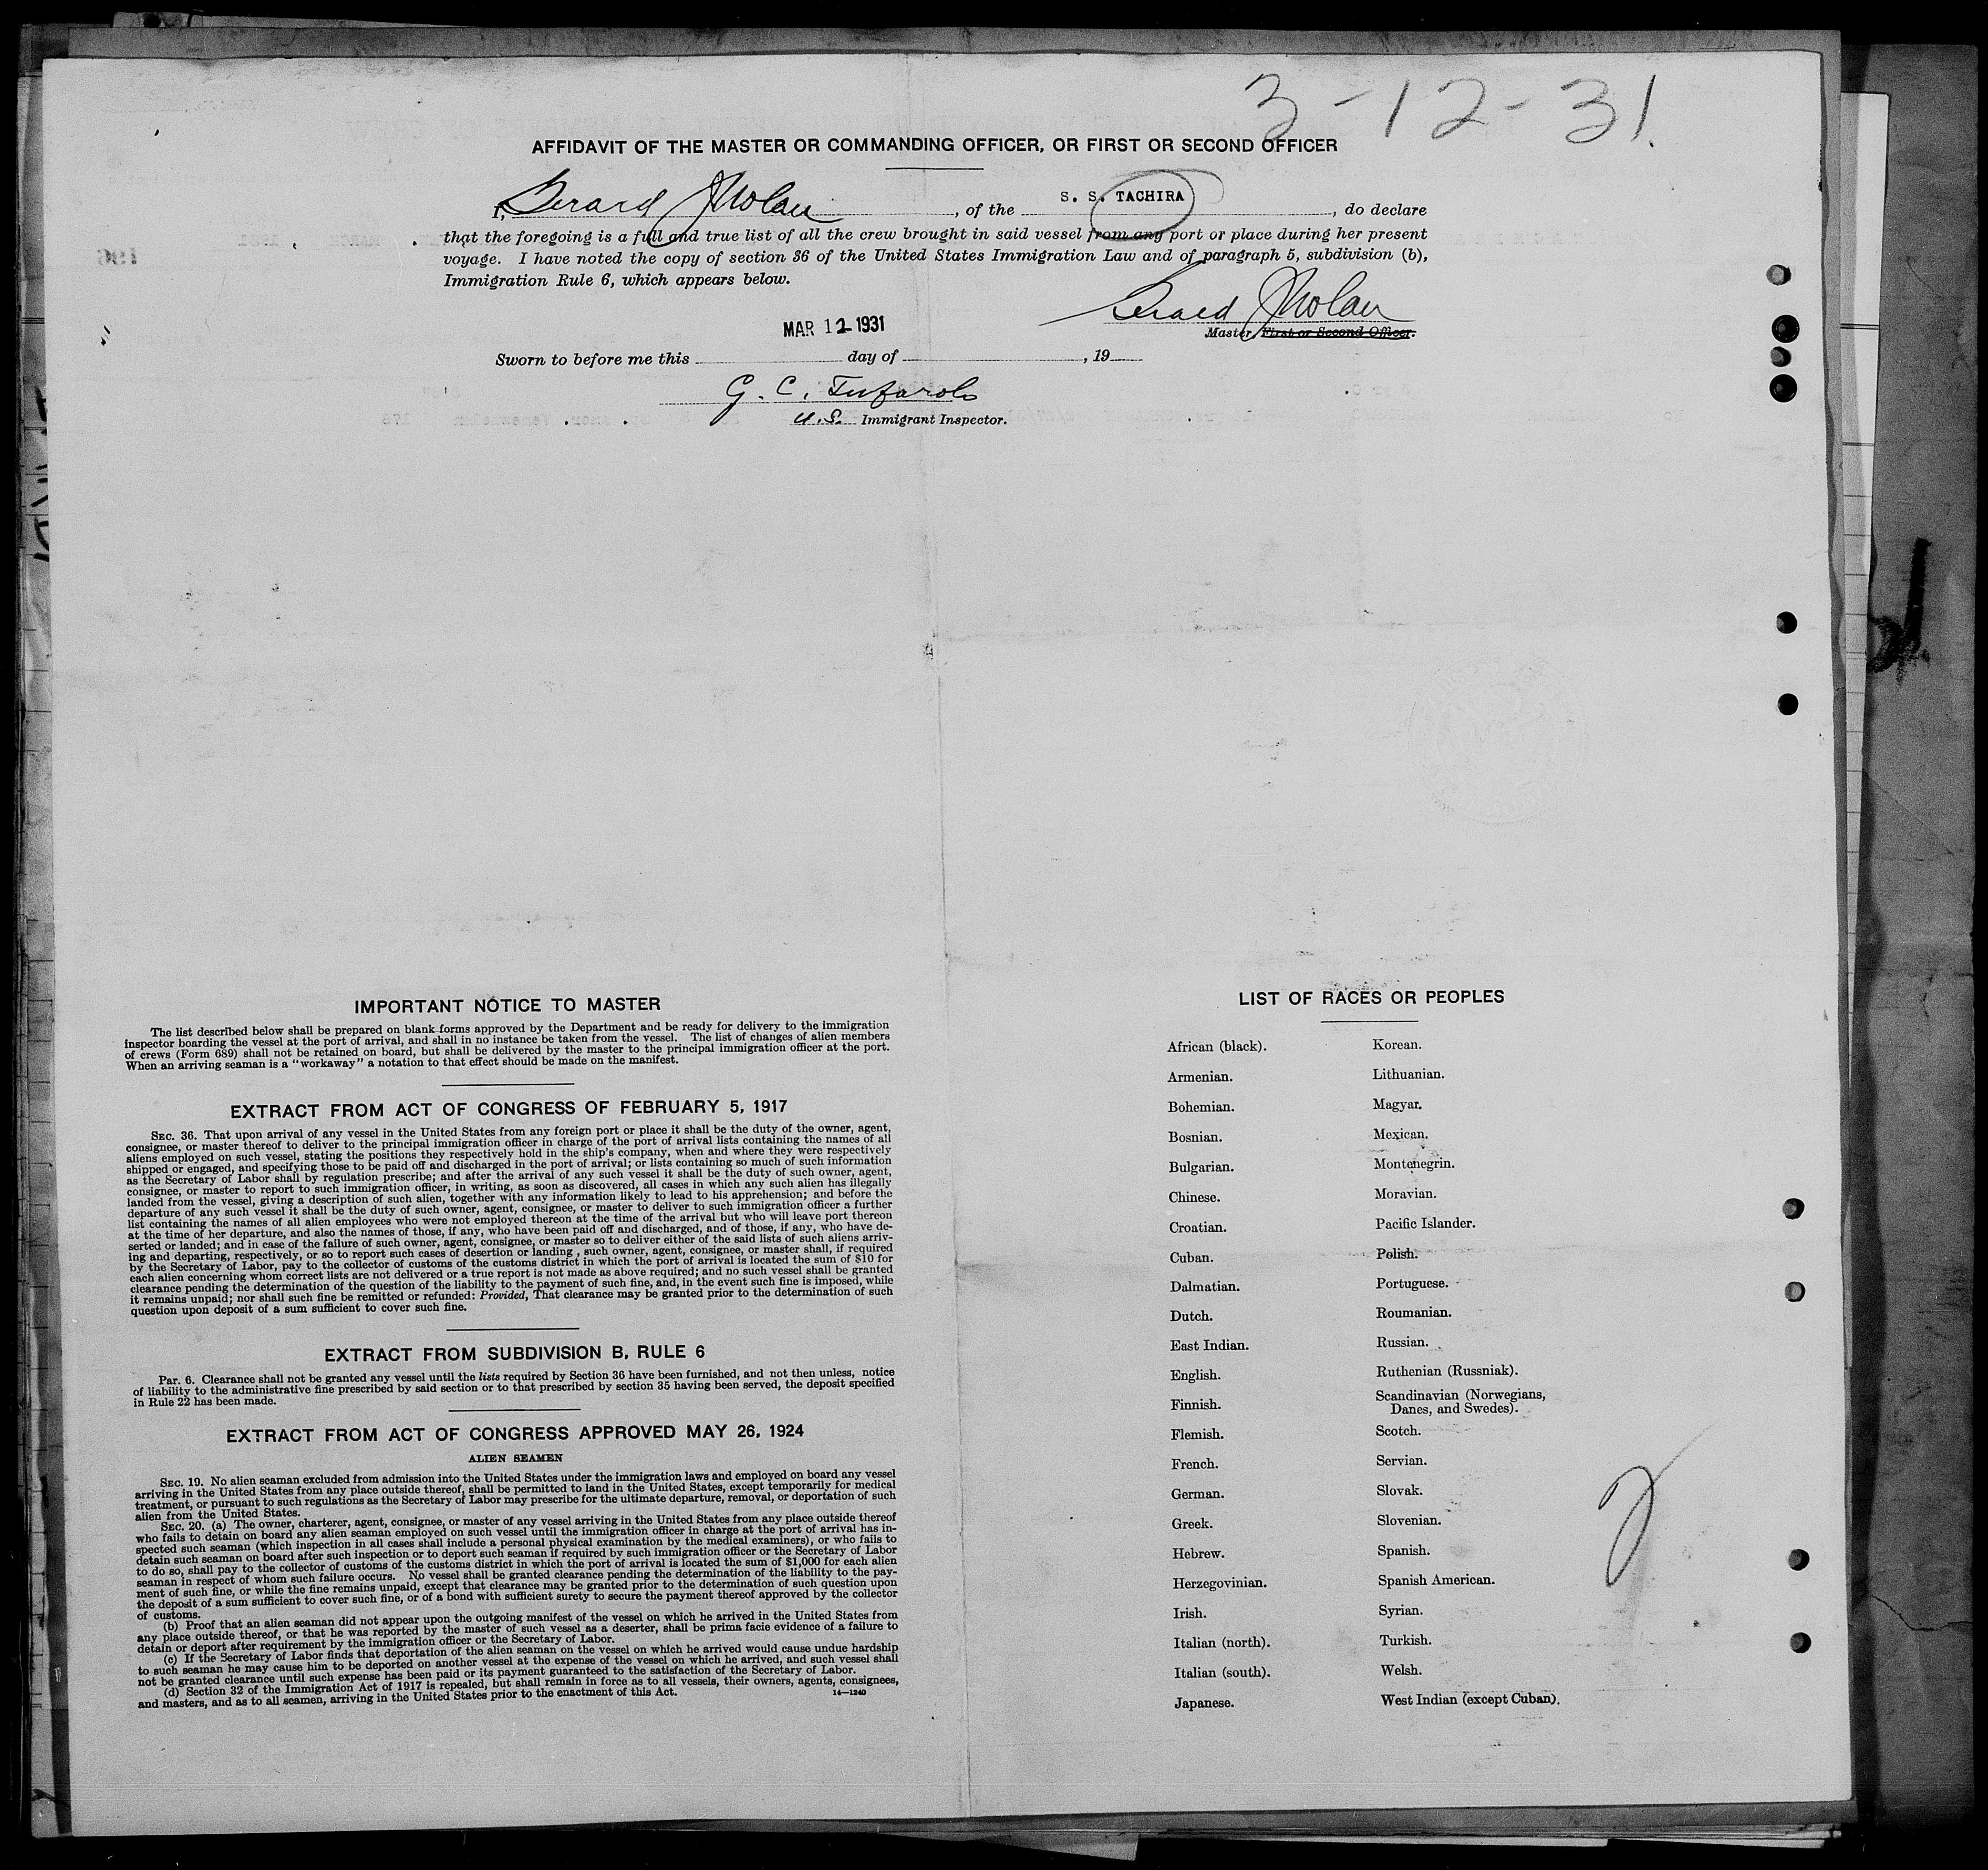 3-12-31.
AFFIDAVIT OF THE MASTER OR COMMANDING OFFICER, OR FIRST OR SECOND OFFICER
I, Gerard Nolan, of the S. S. TACHIRA, do declare
that the foregoing is a full and true list of all the crew brought in said vessel from any port or place during her present
voyage. I have noted the copy of section 36 of the United States Immigration Law and of paragraph 5, subdivision (b),
Immigration Rule 6, which appears below.
Gerard Nolan
Master, First or Second Officer.
MAR 12 1931
Sworn to before me this day of , 19
G. C. Tufarolo
U.S. Immigrant Inspector.
IMPORTANT NOTICE TO MASTER
The list described below shall be prepared on blank forms approved by the Department and be ready for delivery to the immigration
inspector boarding the vessel at the port of arrival, and shall in no instance be taken from the vessel. The list of changes of alien members
of crews (Form 689) shall not be retained on board, but shall be delivered by the master to the principal immigration officer at the port.
When an arriving seaman is a "workaway" a notation to that effect should be made on the manifest.
EXTRACT FROM ACT OF CONGRESS OF FEBRUARY 5, 1917
SEC. 36. That upon arrival of any vessel in the United States from any foreign port or place it shall be the duty of the owner, agent,
consignee, or master thereof to deliver to the principal immigration officer in charge of the port of arrival lists containing the names of all
aliens employed on such vessel, stating the positions they respectively hold in the ship's company, when and where they were respectively
shipped or engaged, and specifying those to be paid off and discharged in the port of arrival; or lists containing so much of such information
as the Secretary of Labor shall by regulation prescribe; and after the arrival of any such vessel it shall be the duty of such owner, agent,
consignee, or master to report to such immigration officer, in writing, as soon as discovered, all cases in which any such alien has illegally
landed from the vessel, giving a description of such alien, together with any information likely to lead to his apprehension; and before the
departure of any such vessel it shall be the duty of such owner, agent, consignee, or master to deliver to such immigration officer a further
list containing the names of all alien employees who were not employed thereon at the time of the arrival but who will leave port thereon
at the time of her departure, and also the names of those, if any, who have been paid off and discharged, and of those, if any, who have de-
serted or landed; and in case of the failure of such owner, agent, consignee, or master so to deliver either of the said lists of such aliens arriv-
ing and departing, respectively, or so to report such cases of desertion or landing, such owner, agent, consignee, or master shall, if required
by the Secretary of Labor, pay to the collector of customs of the customs district in which the port of arrival is located the sum of $10 for
each alien concerning whom correct lists are not delivered or a true report is not made as above required; and no such vessel shall be granted
clearance pending the determination of the question of the liability to the payment of such fine, and, in the event such fine is imposed, while
it remains unpaid; nor shall such fine be remitted or refunded: Provided, That clearance may be granted prior to the determination of such
question upon deposit of a sum sufficient to cover such fine.
EXTRACT FROM SUBDIVISION B, RULE 6
Par. 6. Clearance shall not be granted any vessel until the lists required by Section 36 have been furnished, and not then unless, notice
of liability to the administrative fine prescribed by said section or to that prescribed by section 35 having been served, the deposit specified
in Rule 22 has been made.
EXTRACT FROM ACT OF CONGRESS APPROVED MAY 26, 1924
ALIEN SEAMEN
SEC. 19. No alien seaman excluded from admission into the United States under the immigration laws and employed on board any vessel
arriving in the United States from any place outside thereof, shall be permitted to land in the United States, except temporarily for medical
treatment, or pursuant to such regulations as the Secretary of Labor may prescribe for the ultimate departure, removal, or deportation of such
alien from the United States.
SEC. 20. (a) The owner, charterer, agent, consignee, or master of any vessel arriving in the United States from any place outside thereof
who fails to detain on board any alien seaman employed on such vessel until the immigration officer in charge at the port of arrival has in-
spected such seaman (which inspection in all cases shall include a personal physical examination by the medical examiners), or who fails to
detain such seaman on board after such inspection or to deport such seaman if required by such immigration officer or the Secretary of Labor
to do so, shall pay to the collector of customs of the customs district in which the port of arrival is located the sum of $1,000 for each alien
seaman in respect of whom such failure occurs. No vessel shall be granted clearance pending the determination of the liability to the pay-
ment of such fine, or while the fine remains unpaid, except that clearance may be granted prior to the determination of such question upon
the deposit of a sum sufficient to cover such fine, or of a bond with sufficient surety to secure the payment thereof approved by the collector
of customs.
(b) Proof that an alien seaman did not appear upon the outgoing manifest of the vessel on which he arrived in the United States from
any place outside thereof, or that he was reported by the master of such vessel as a deserter, shall be prima facie evidence of a failure to
detain or deport after requirement by the immigration officer or the Secretary of Labor.
(c) If the Secretary of Labor finds that deportation of the alien seaman on the vessel on which he arrived would cause undue hardship
to such seaman he may cause him to be deported on another vessel at the expense of the vessel on which he arrived, and such vessel shall
not be granted clearance until such expense has been paid or its payment guaranteed to the satisfaction of the Secretary of Labor.
(d) Section 32 of the Immigration Act of 1917 is repealed, but shall remain in force as to all vessels, their owners, agents, consignees,
and masters, and as to all seamen, arriving in the United States prior to the enactment of this Act.
14—1240
LIST OF RACES OR PEOPLES
African (black).
Armenian.
Bohemian.
Bosnian.
Bulgarian.
Chinese.
Croatian.
Cuban.
Dalmatian.
Dutch.
East Indian.
English.
Finnish.
Flemish.
French.
German.
Greek.
Hebrew.
Herzegovinian.
Irish.
Italian (north).
Italian (south).
Japanese.
Korean.
Lithuanian.
Magyar.
Mexican.
Montenegrin.
Moravian.
Pacific Islander.
Polish.
Portuguese.
Roumanian.
Russian.
Ruthenian (Russniak).
Scandinavian (Norwegians,
Danes, and Swedes).
Scotch.
Servian.
Slovak.
Slovenian.
Spanish.
Spanish American.
Syrian.
Turkish.
Welsh.
West Indian (except Cuban).